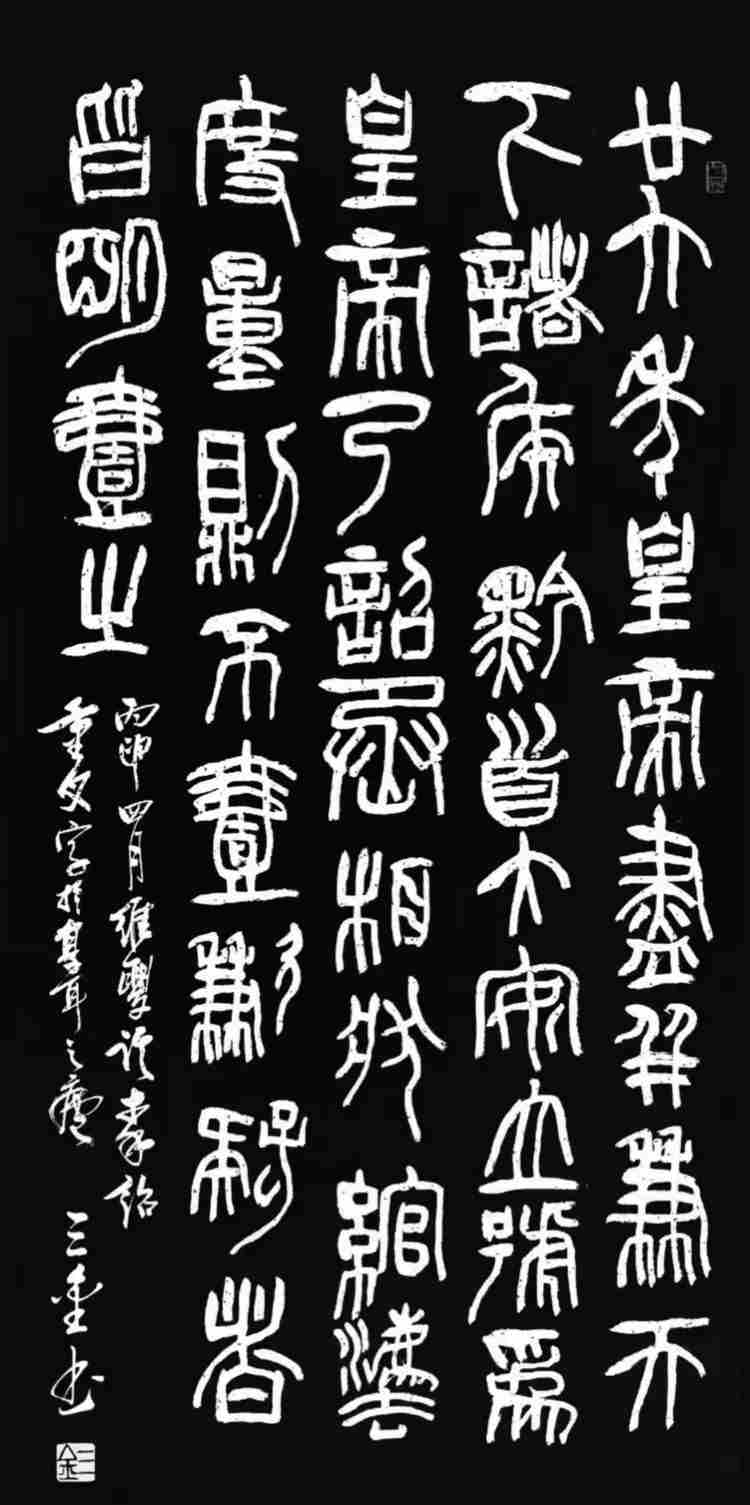 廿六年皇帝盡并兼天
下諸侯黔首大安立號為
皇帝乃詔丞相狀綰灋
度量則不壹歉疑者
皆明壹之
丙申四月秦詔
重文字於之
三金书
三金